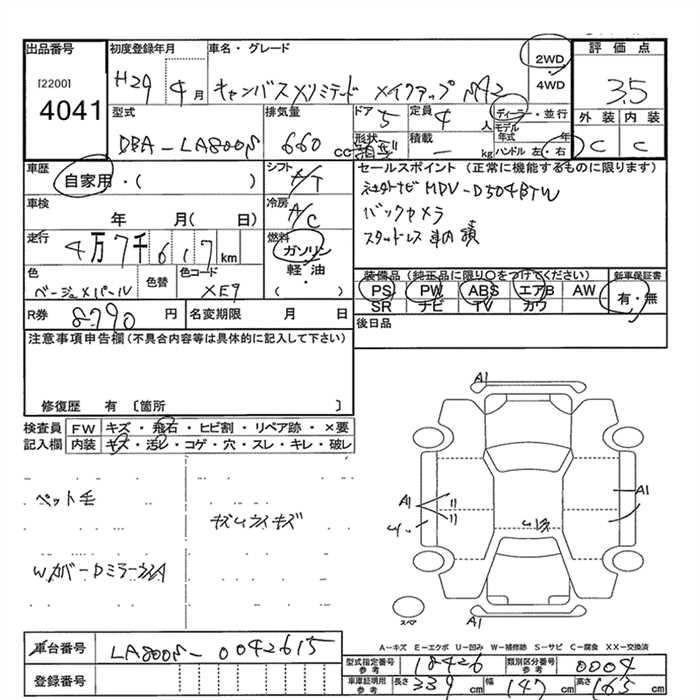 出品番号
[2200]
4041
初度登録年月
H29年 4月
車名・グレード
キャンバスXリミテッド メイクアップ
2WD
4WD
評価点
3.5
外装 内装
C C
型式
DBA-LA800S
排気量
660 cc
ドア
5
形状
定員
4人
積載
- kg
ディーラー・並行
モデル年式 年
ハンドル 左・右
車歴
自家用・( )
シフト
A/T
セールスポイント (正常に機能するものに限ります)
NDV-D504BTW
バックカメラ
スタッドレス 車内積
車検
年 月( 日)
冷房
A/C
走行
4万7千617km
燃料
ガソリン
軽・油
( )
色
ベージュXパール
色替
色コード
XE9
装備品 (純正品に限り○をつけてください)
PS PW ABS エアB AW
SR ナビ TV カワ
新車保証書
有・無
R券
8790円
名変期限 月 日
後日品
注意事項申告欄 (不具合内容等は具体的に記入して下さい)
修復歴 有 〔箇所 〕
検査員 FW キズ・飛石・ヒビ割・リペア跡・×要
記入欄 内装 キズ・汚レ・コゲ・穴・スレ・キレ・破レ
ペット毛
キズ
Wカバー Dミラー
A1
A1
A1
A1
スペア
A-キズ E-エクボ U-凹み W-補修跡 S-サビ C-腐食 XX-交換済
車台番号 LA800S-0042615
登録番号
型式指定番号 参考 18426
類別区分番号 参考 0004
車庫証明用 参考 長さ 339cm 幅 147cm 高さ 165cm